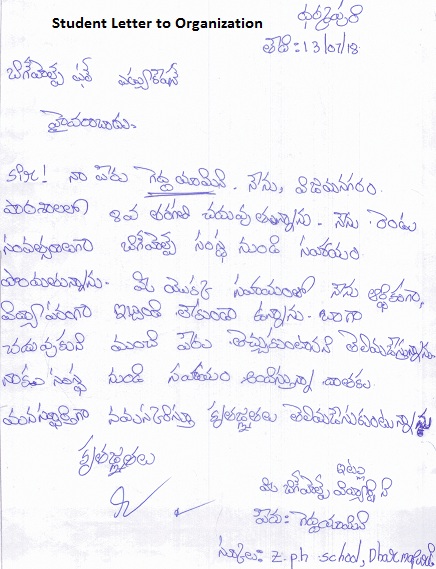 Student Letter to Organization
ధర్మపురి
తేది: 13/07/18.
బిగ్‌హెల్ప్ ఫర్ ఎడ్యుకేషన్
హైదరాబాదు.
సర్! నా పేరు గెడ్డ యామిని. నేను, విజయనగరం.
పాఠశాలలో 8వ తరగతి చదువుతున్నాను. నేను రెండు
సంవత్సరాలుగా బిగ్‌హెల్ప్ సంస్థ నుండి సహాయం
పొందుతున్నాను. మీ యొక్క సహాయంతో నేను ఆర్థికంగా,
విద్యాపరంగా ఇబ్బంది లేకుండా ఉన్నాను. బాగా
చదువుకుని మంచి పేరు తెచ్చుకుంటానని తెలియజేస్తున్నాను
నాకు సంస్థ నుండి సహాయం అందిస్తున్న దాతకు
మనస్ఫూర్తిగా నమస్కరిస్తూ కృతజ్ఞతలు తెలియజేసుకుంటున్నాను
కృతజ్ఞతలు
ఇట్లు
మీ బిగ్‌హెల్ప్ విద్యార్థిని
పేరు: గెడ్డ యామిని
స్కూలు: Z.p.h school, Dharmapuri.